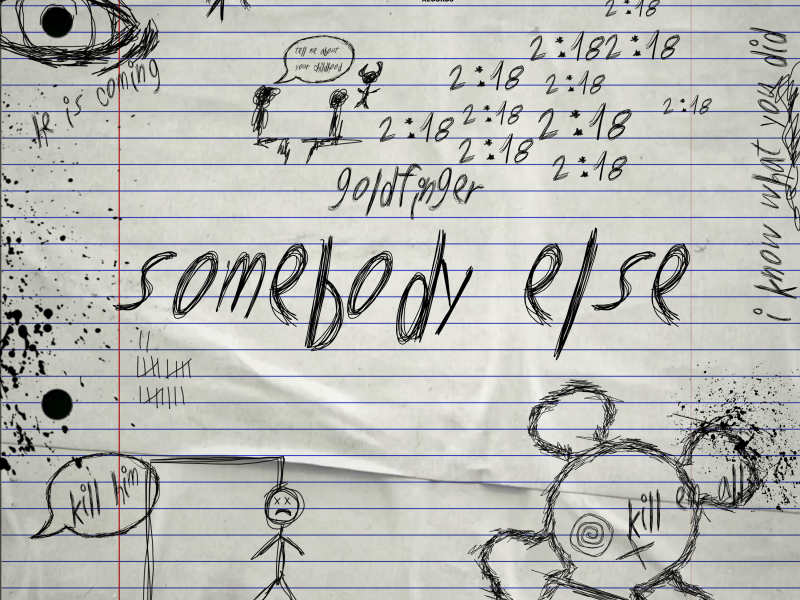 RECORDS
2:18
2:18 2:18
tell me about
your childhood
2:18
2:18
2:18
2:18
2:18
2:18
2:18
2:18
He is coming
i know what you did
goldfinger
somebody else
kill him
kill em all